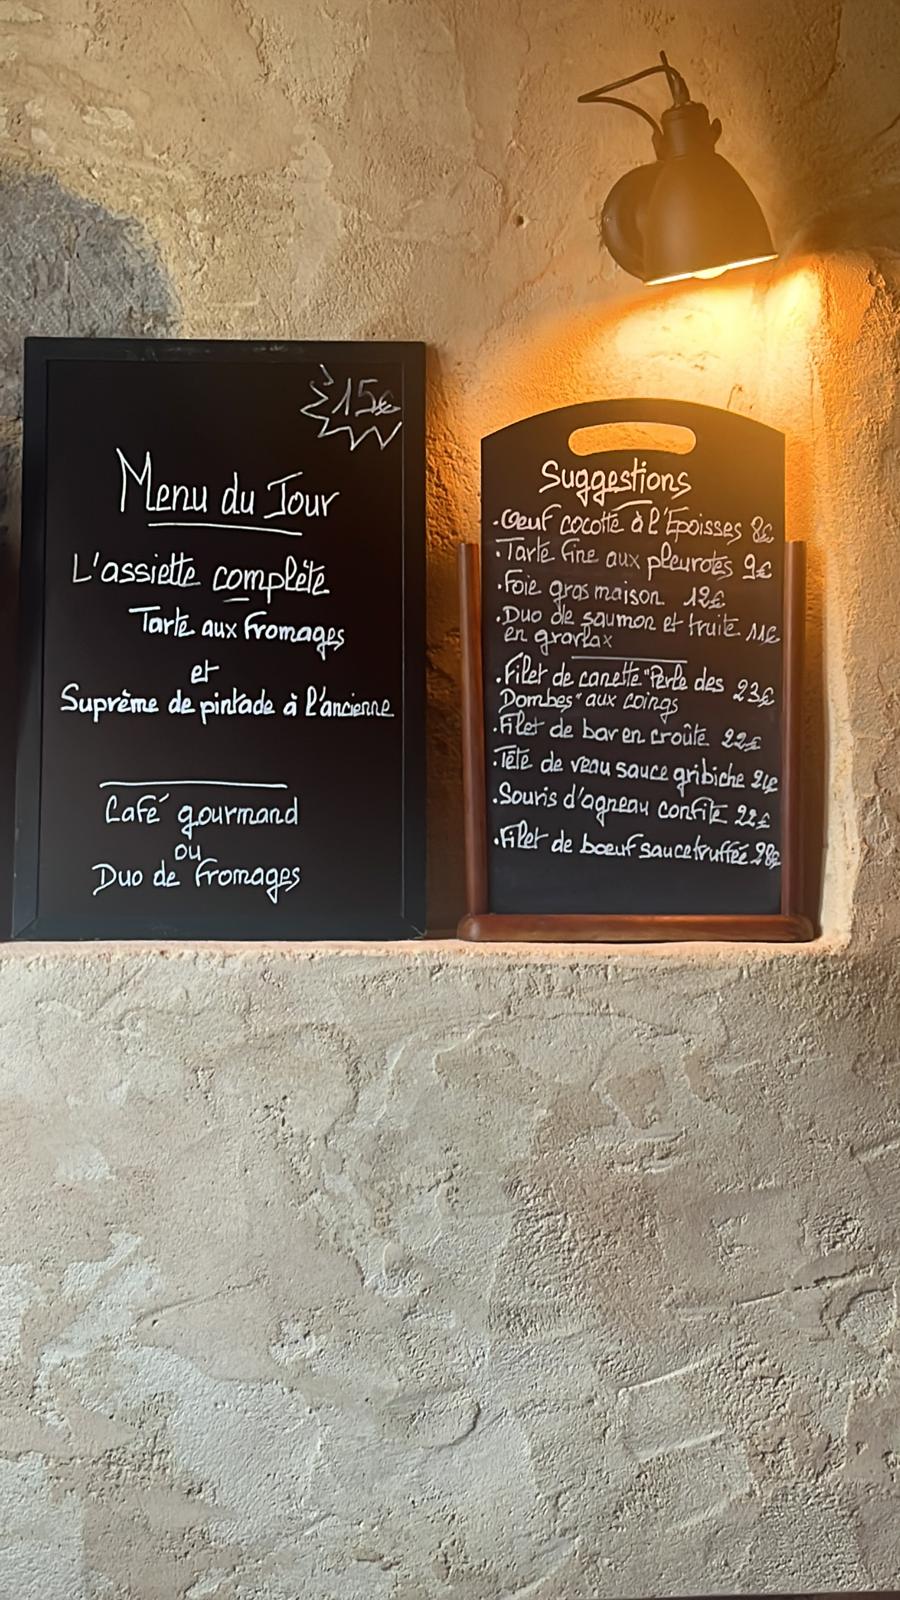 15€
Menu du Jour
L'assiette complète
Tarte aux fromages
et
Suprême de pintade à l'ancienne
Café gourmand
ou
Duo de fromages
Suggestions
. Oeuf cocotte à l'Epoisses 8€
. Tarte fine aux pleurotes 9€
. Foie gras maison 12€
. Duo de saumon et truite 11€
en gravlax
. Filet de canette "Perle des 23€
Dombes" aux coings
. Filet de bar en croûte 22€
. Tête de veau sauce gribiche
. Souris d'agneau confite 22€
. Filet de boeuf sauce truffée 28€